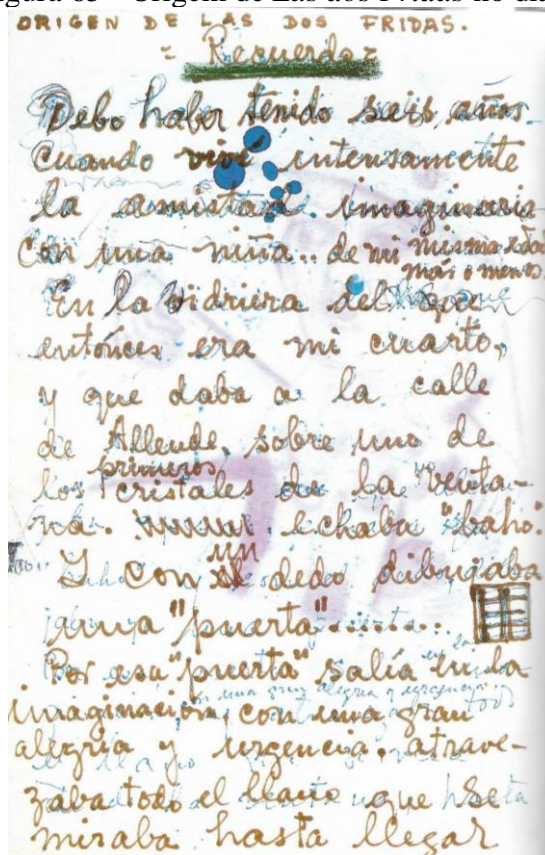 Origem de Las dos Fridas no
ORIGEN DE LAS DOS FRIDAS.
= Recuerdo =
Debo haber tenido seis años
cuando viví intensamente
la amistad imaginaria
con una niña.. de mi misma edad
más o menos.
En la vidriera del que
entónces era mi cuarto,
y que daba a la calle
de Allende, sobre uno de
los primeros cristales de la venta-
na. echaba "baho".
Y con un dedo dibujaba
una "puerta"........
Por esa "puerta" salía en la
imaginación, con una gran
alegría y urgencia, atrave-
zaba todo el llano que se
miraba hasta llegar